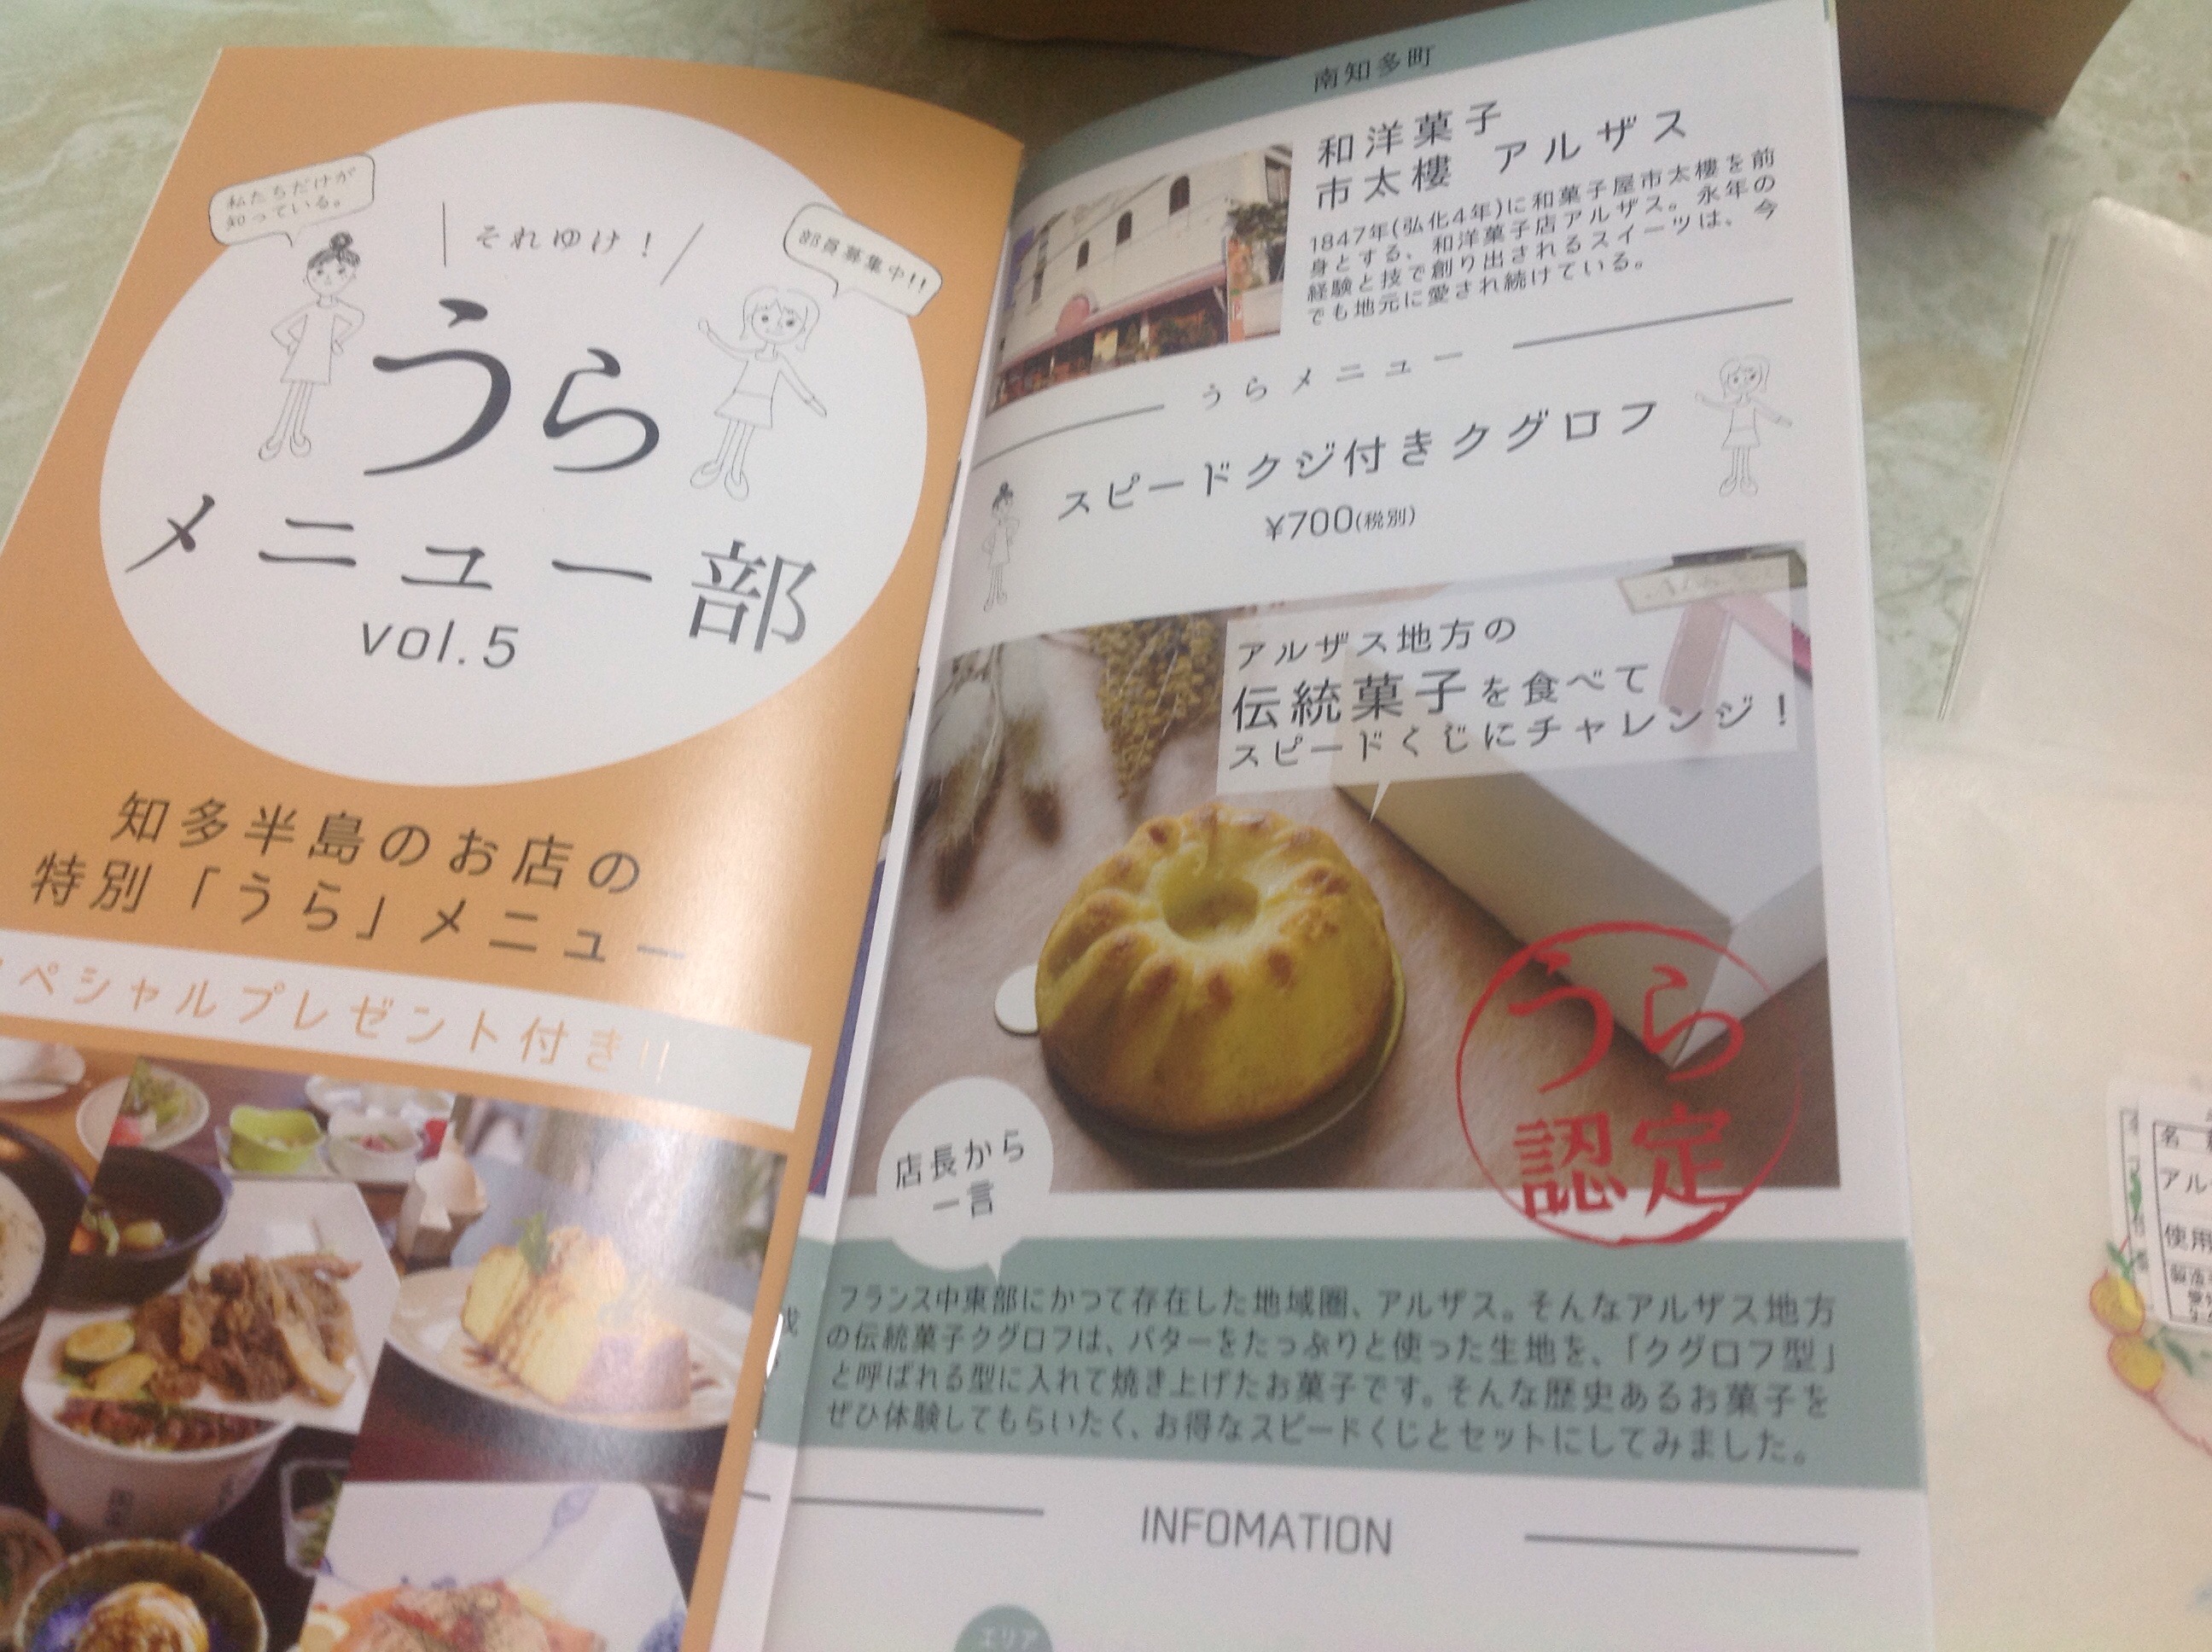 私たちだけが
知っている。
それゆけ！
部員募集中!!
うら
メニュー部
vol.5
知多半島のお店の
特別「うら」メニュー
ペシャルプレゼント付き!!
南知多町
和洋菓子
市太樓 アルザス
1847年(弘化4年)に和菓子屋市太樓を前
身とする、和洋菓子店アルザス。永年の
経験と技で創り出されるスイーツは、今
でも地元に愛され続けている。
うらメニュー
スピードクジ付きクグロフ
¥700(税別)
アルザス地方の
伝統菓子を食べて
スピードくじにチャレンジ！
うら
認定
店長から
一言
フランス中東部にかつて存在した地域圏、アルザス。そんなアルザス地方
の伝統菓子クグロフは、バターをたっぷりと使った生地を、「クグロフ型」
と呼ばれる型に入れて焼き上げたお菓子です。そんな歴史あるお菓子を
ぜひ体験してもらいたく、お得なスピードくじとセットにしてみました。
INFOMATION
エリア
名
アル
使用